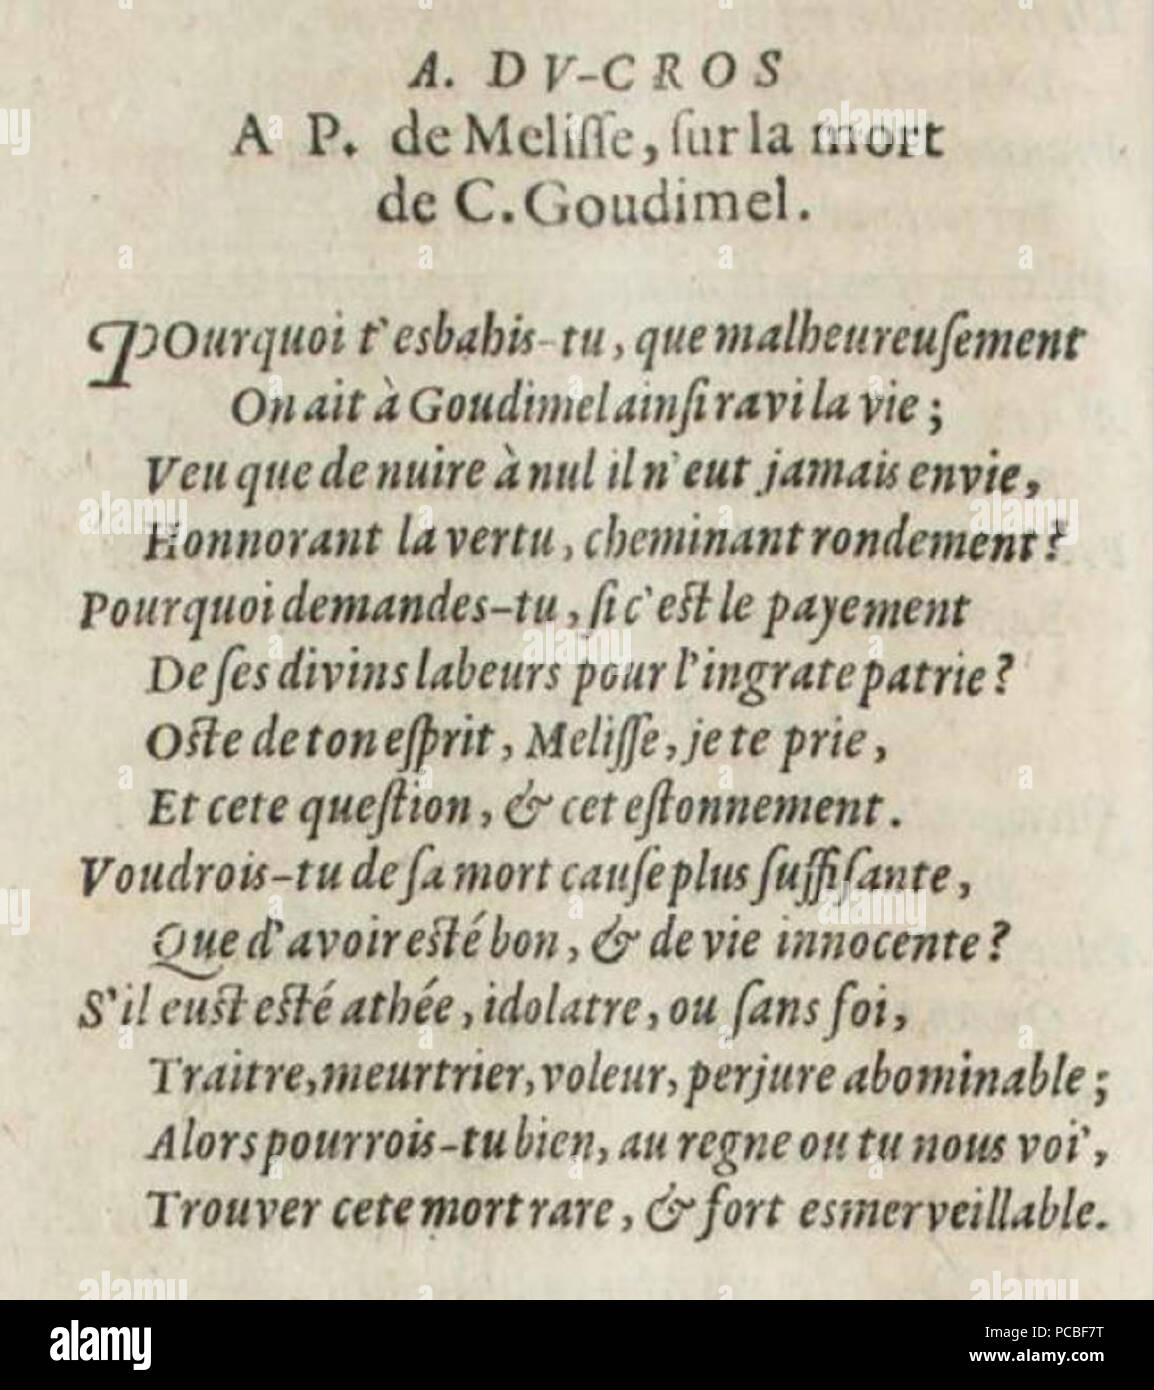 A. DV-CROS
A P. de Meliſſe, ſur la mort
de C. Goudimel.
POurquoi t'esbahis-tu, que malheureuſement
On ait à Goudimel ainſi ravi la vie;
Veu que de nuire à nul il n'eut jamais envie,
Honnorant la vertu, cheminant rondement?
Pourquoi demandes-tu, ſi c'eſt le payement
De ſes divins labeurs pour l'ingrate patrie?
Oſte de ton eſprit, Meliſſe, je te prie,
Et cete queſtion, & cet eſtonnement.
Voudrois-tu de ſa mort cauſe plus ſuffiſante,
Que d'avoir eſté bon, & de vie innocente?
S'il euſt eſté athée, idolatre, ou ſans foi,
Traitre, meurtrier, voleur, perjure abominable;
Alors pourrois-tu bien, au regne ou tu nous voi',
Trouver cete mort rare, & fort esmerveillable.
alamy
Image ID: PCBF7T
www.alamy.com